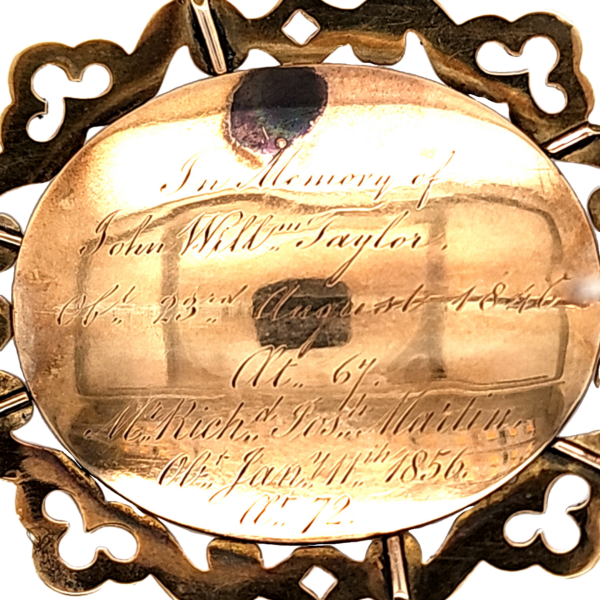 In Memory of
John Will.m Taylor.
Ob.t 23rd August 1846
Æt. 67.
Mr. Rich.d Jos.h Martin.
Ob.t Jan.y 11th 1856.
Æt 72.